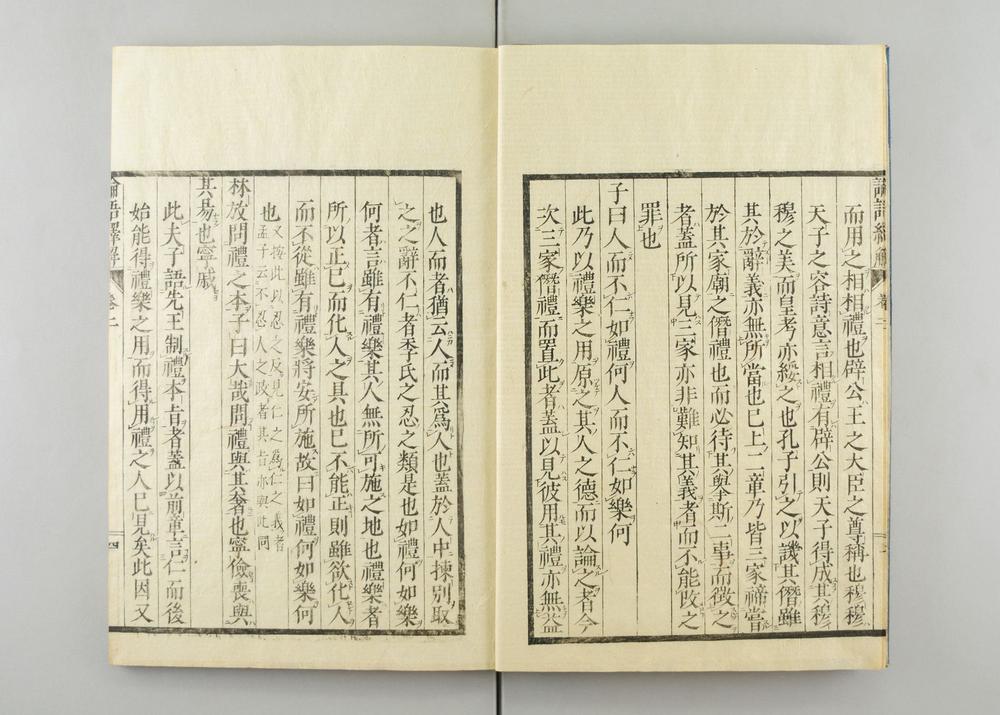 而用之相相禮也辟公王之大臣之尊稱也穆穆
天子之容詩意言相禮有辟公則天子得成其穆
穆之美而皇考亦綏之也孔子引之以譏其僭雖
其於辭義亦無所當也已上二章乃皆三家禘嘗
於其家廟之僭禮也而必待其舉斯二事而徵之
者蓋所以見三家亦非難知其義者而不能改之
罪也
子曰人而不仁如禮何人而不仁如樂何
此乃以禮樂之用原之其人之德而以論之者今
次三家僭禮而置此者蓋以見彼用其禮亦無益
也人而者猶云人而其爲人也蓋於人中揀別取
之之辭不仁者季氏之忍之類是也如禮何如樂
何者言雖有禮樂其人無所可施之地也禮樂者
所以正己而化人之具也已不能正則雖欲化人
而不從雖有禮樂將安所施故曰如禮何如樂何
也又按此以忍之反見仁之爲仁之義者
孟子云不忍人之政者其旨亦與此同
林放問禮之本子曰大哉問禮與其奢也寧儉喪與
其易也寧戚
此夫子語先王制禮本旨者蓋以前章言仁而後
始能得禮樂之用而得用禮之人已見矣此因又
論語繹解 卷二 四